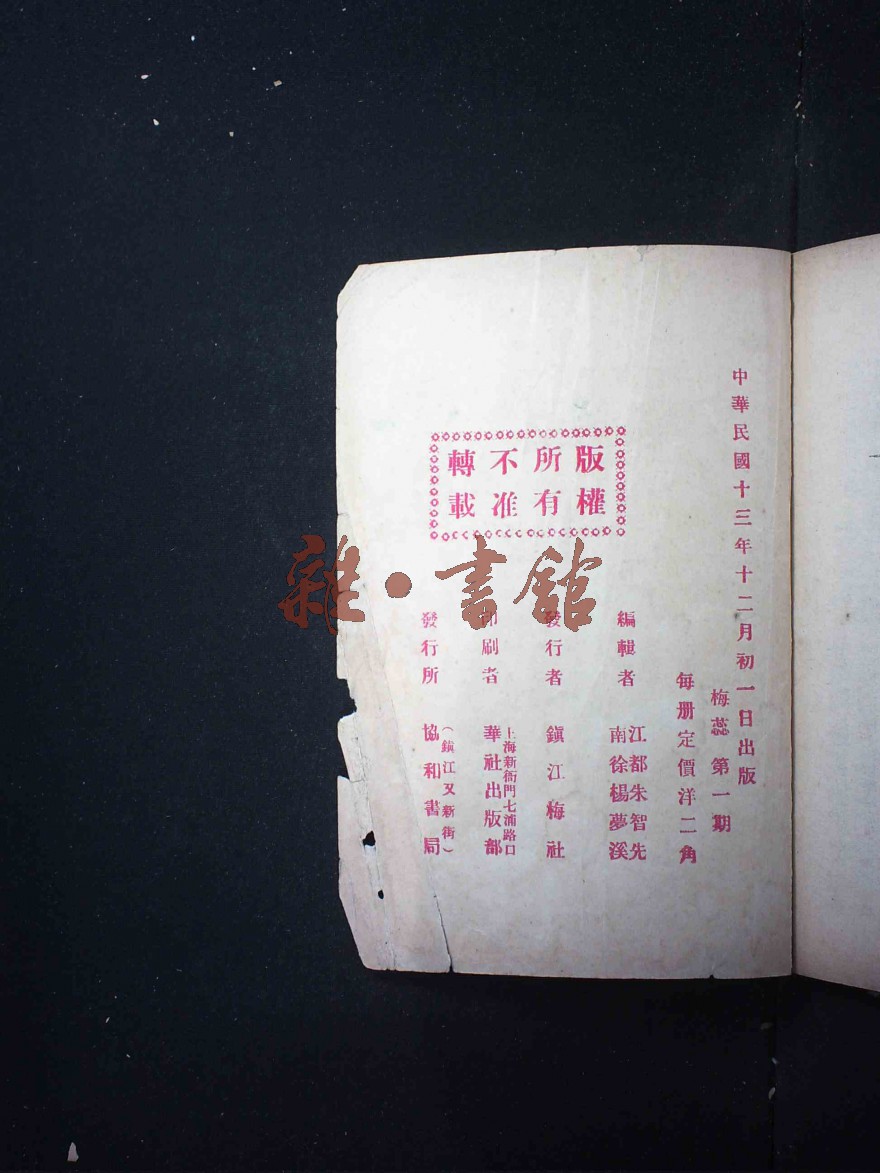 中華民國十三年十二月初一日出版
梅蕊第一期
每册定價洋二角
版權
所有
不准
轉載
編輯者
江都朱智先
南徐楊夢溪
發行者
鎮江梅社
印刷者
上海新衙門七浦路口
華社出版部
發行所
（鎮江又新街）
協和書局
雜·書館